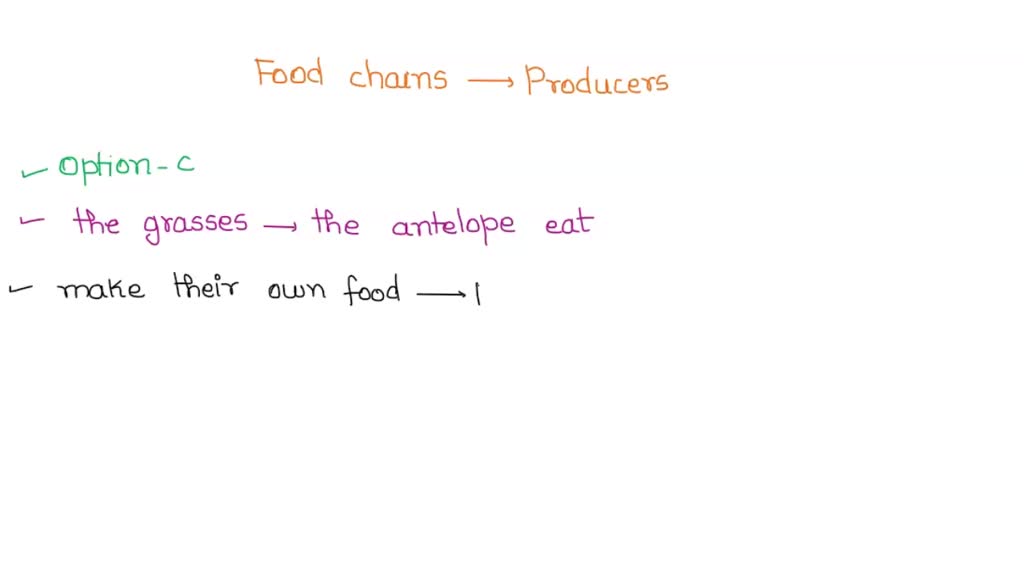 Food chains → Producers
✓ Option-c
✓ the grasses → the antelope eat
✓ make their own food →